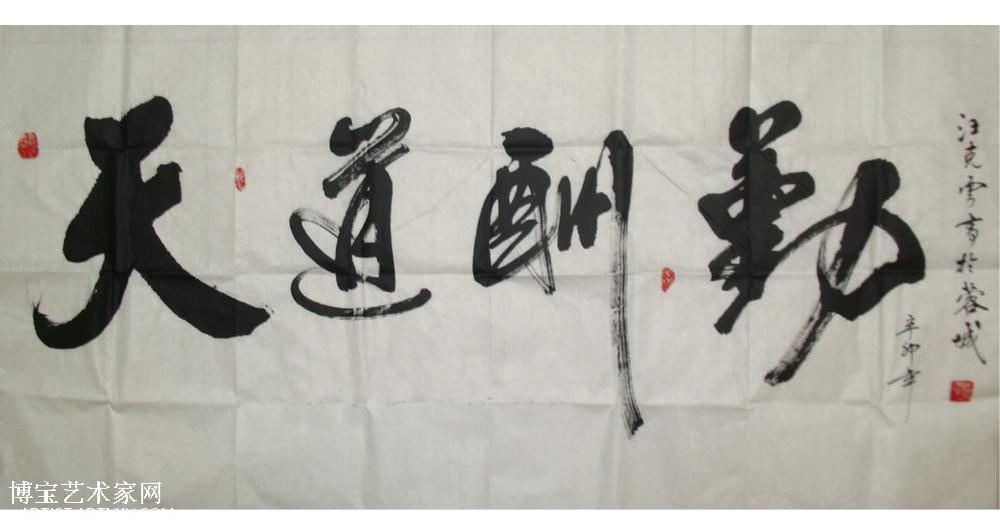 天道酬勤
汪克雲書於蓉城
辛卯年
博宝艺术家网